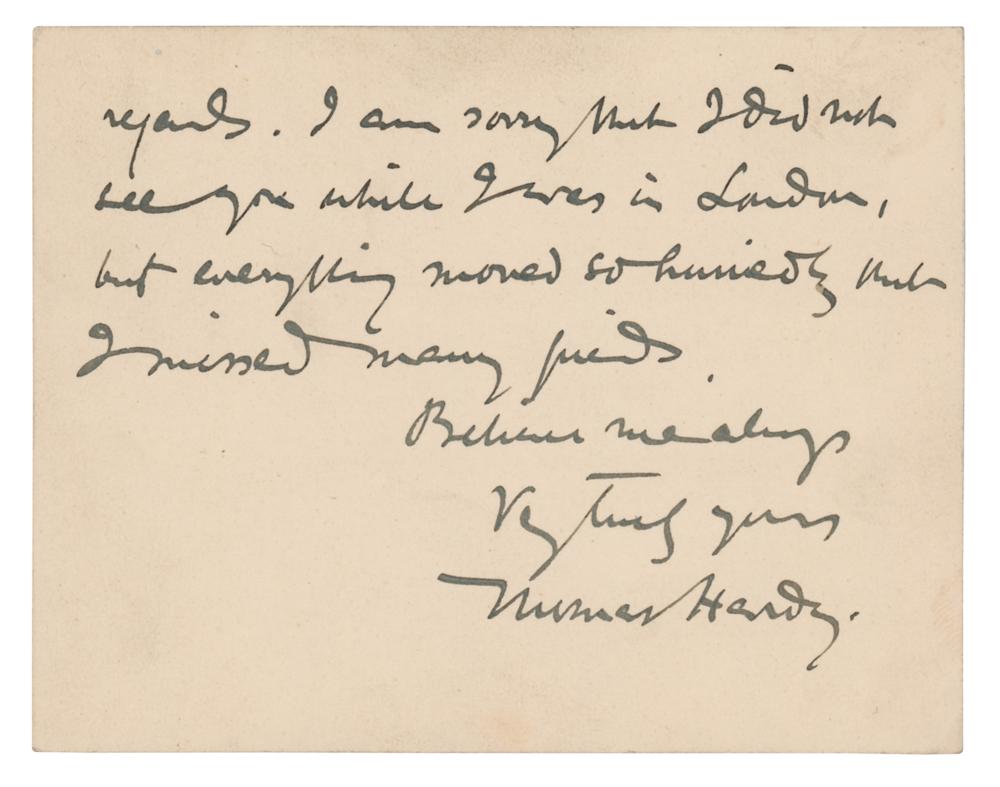 regards. I am sorry that I did not
see you while I was in London,
but everything moved so hurriedly that
I missed many friends.
Believe me always
Very truly yours
Thomas Hardy.